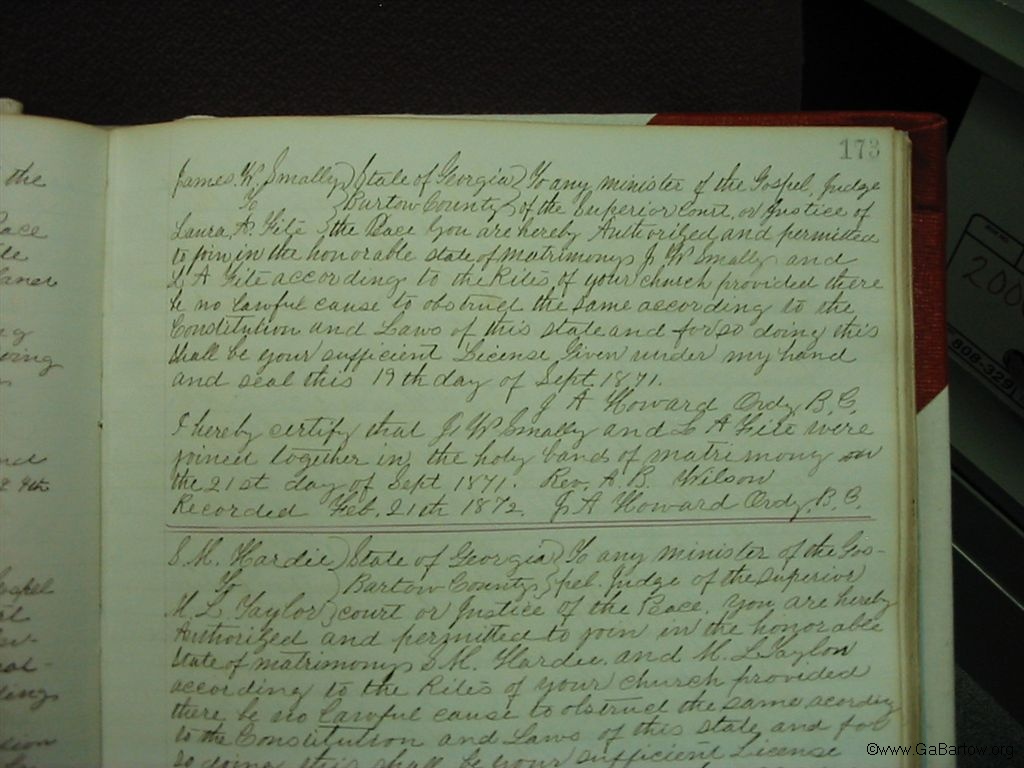 173
James W. Smally State of Georgia To any minister of the Gospel, Judge
To Bartow County of the Superior Court, or Justice of
Laura A. Fite the Peace You are hereby Authorized, and permitted
to join in the honorable state of matrimony J W Smally and
L A Fite according to the Rites of your church provided there
be no lawful cause to obstruct the same according to the
Constitution and Laws of this state and for so doing this
shall be your sufficient License, Given under my hand
and seal this 19th day of Sept. 1871.
J A Howard Ordy. B. C.
I hereby certify that J. W Smally and L A Fite were
joined together in the holy bands of matrimony on
the 21st day of Sept 1871. Rev. A. B. Wilson
Recorded Feb. 21th 1872. J A Howard Ordy. B. C.
S. M. Hardie State of Georgia To any minister of the Gos-
To Bartow County pel, Judge of the Superior
M. L. Taylor court or Justice of the Peace. You are hereby
Authorized and permitted to join in the honorable
State of matrimony S. M. Hardie and M. L Taylor
according to the Rites of your church provided
there be no lawful cause to obstruct the same, acording
to the Constitution and Laws of this state, and for
so doing this shall be your sufficient License
the
eace
ving
9th
ospel
dings
200
808-3291
©www.GaBartow.org